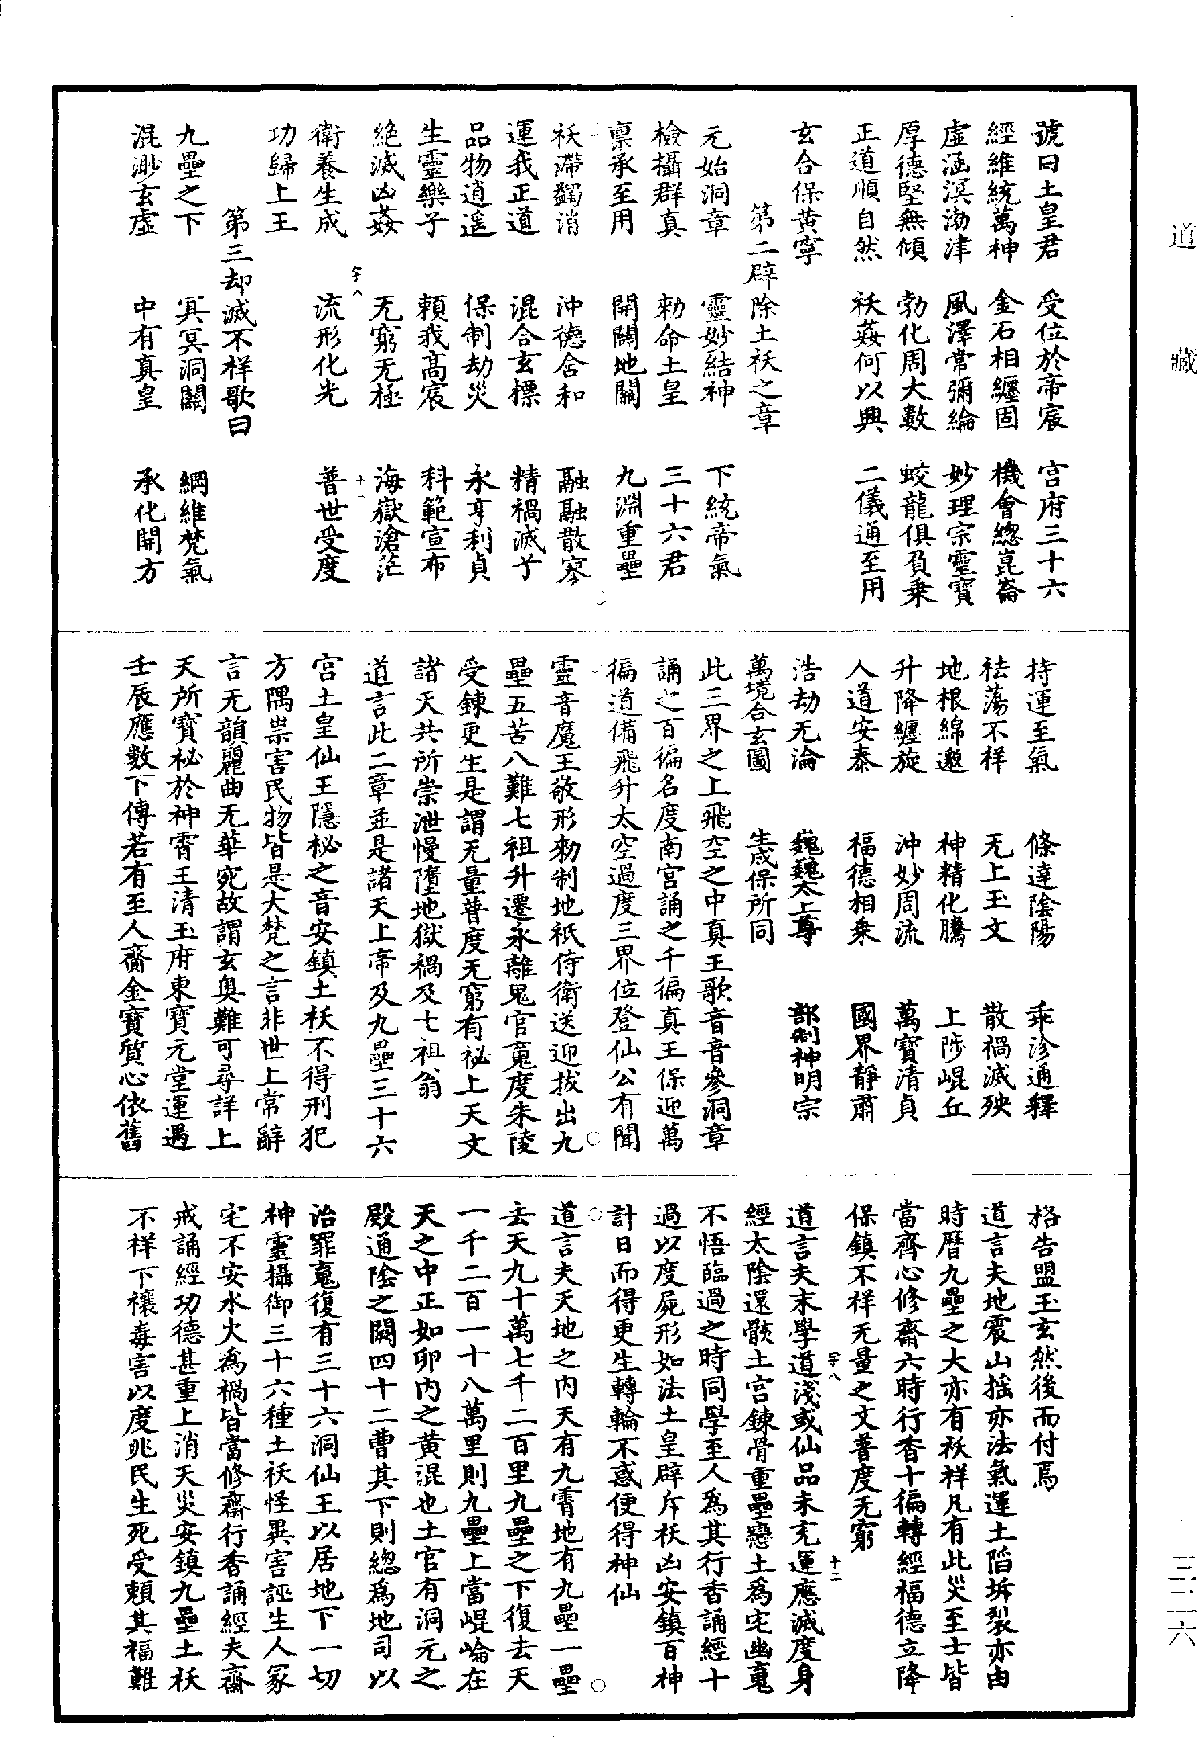 道藏
號曰土皇君　受位於帝宸　宮府三十六
經維統萬神　金石相纏固　機會總崑崙
虛涵溟渤津　風澤常彌綸　妙理宗靈寶
厚德堅無傾　勃化周大數　蛟龍俱負乘
正道順自然　袄姦何以興　二儀通至用
玄合保黃寧
第二辟除土袄之章
元始洞章　靈妙結神　下統帝氣
檢攝群真　勑命土皇　三十六君
禀承至用　開闢地關　九淵重壘
袄滯蠲消　沖德含和　融融散寥
運我正道　混合玄標　精禍滅予
品物逍遥　保制劫災　永亨利貞
生靈樂子　頼我高宸　科範宣布
絶滅凶姦　无窮无極　海嶽滄茫
字八　十一
衛養生成　流形化光　普世受度
功歸上王
第三却滅不祥歌曰
九壘之下　冥冥洞關　綱維梵氣
混渺玄虛　中有真皇　承化開方
持運至氣　條達陰陽　乘沴通釋
祛蕩不祥　无上玉文　散禍滅殃
地根綿邈　神精化騰　上陟崐丘
升降纏旋　沖妙周流　萬寶清貞
人道安泰　福德相乘　國界靜肅
浩劫无淪　巍巍太上尊　部制神明宗
萬境合玄圖　生成保所同
此三界之上飛空之中真王歌音音參洞章
誦之百徧名度南宮誦之千徧真王保迎萬
徧道備飛升太空過度三界位登仙公有聞
靈音魔王敬形勑制地祇侍衛送迎拔出九
壘五苦八難七祖升遷永離鬼官䰟度朱陵
受鍊更生是謂无量普度无窮有祕上天文
諸天共所崇泄慢墮地獄禍及七祖翁
道言此二章並是諸天上帝及九壘三十六
宮土皇仙王隱秘之音安鎮土袄不得刑犯
方隅祟害民物皆是大梵之言非世上常辭
言无韻麗曲无華宛故謂玄奧難可尋詳上
天所寶秘於神霄王清玉府東寶元堂運遇
壬辰應數下傳若有至人齎金寶質心依舊
格告盟玉玄然後而付焉
道言夫地震山搖亦法氣運土陷坼裂亦由
時曆九壘之大亦有袄祥凡有此災至士皆
當齊心修齋六時行香十徧轉經福德立降
保鎮不祥无量之文普度无窮
字八　十二
道言夫末學道淺或仙品未充運應滅度身
經太陰還骸土宮鍊骨重壘戀土為宅幽䰟
不悟臨過之時同學至人為其行香誦經十
過以度屍形如法土皇辟斥袄凶安鎮百神
計日而得更生轉輪不惑便得神仙
道言夫天地之內天有九霄地有九壘一壘
去天九十萬七千二百里九壘之下復去天
一千二百一十八萬里則九壘上當崐崘在
天之中正如卵內之黃混也土官有洞元之
殿通陰之闕四十二曹其下則總為地司以
治罪䰟復有三十六洞仙王以居地下一切
神靈攝御三十六種土袄怪異害誣生人冢
宅不安水火為禍皆當修齋行香誦經夫齋
戒誦經功德甚重上消天災安鎮九壘土袄
不祥下禳毒害以度兆民生死受頼其福難
三二六